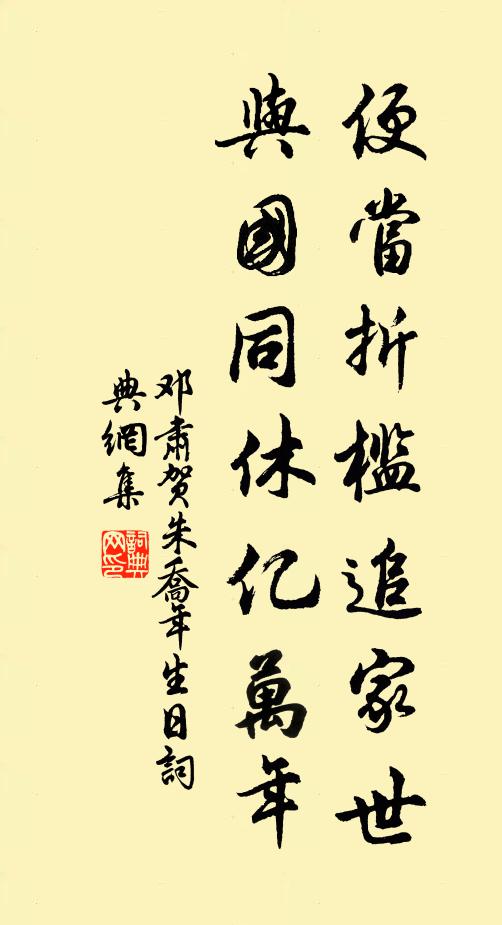 便當折檻追家世
與國同休亿萬年
邓肅贺朱喬年生日詞
典網集
詞典
网印